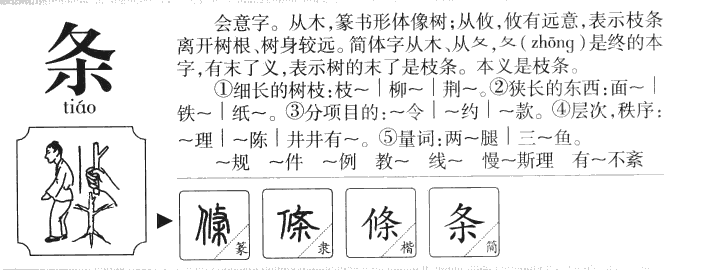 条
tiáo
会意字。从木,篆书形体像树;从攸,攸有远意,表示枝条
离开树根、树身较远。简体字从木、从夂,夂(zhōng)是终的本
字,有末了义,表示树的末了是枝条。本义是枝条。
①细长的树枝:枝~|柳~|荆~。②狭长的东西:面~|
铁~|纸~。③分项目的:~令|~约|~款。④层次,秩序:
~理|~陈|井井有~。⑤量词:两~腿|三~鱼。
~规 ~件 ~例 教~ 线~ 慢~斯理 有~不紊
條 篆 條 隶 條 楷 条 简